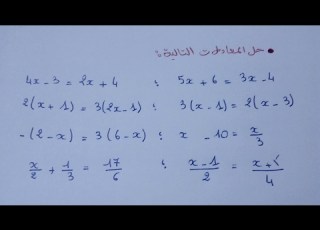 حل المعادلات التالية:
4x - 3 = 2x + 4 ; 5x + 6 = 3x - 4
2(x + 1) = 3(2x - 1) ; 3(x - 1) = 2(x - 3)
-(2 - x) = 3(6 - x) ; x - 10 = x/3
x/2 + 1/3 = 17/6 ; (x - 1)/2 = (x + )/4